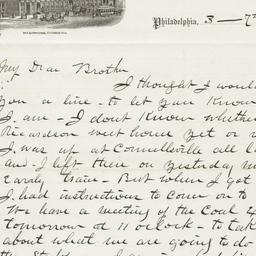 Philadelphia, 3 — 7
My Dear Brother
I thought I would
you a line - to let you Know
I am - I dont Know whether
Ricardson went home yet or n
I was up at Connellsville all l
and - I left there on yesterday m
Early train - But when I get
I had instructions to come on to
We have a meeting of the Coal
tomorrow at 11 oclock - to tak
about what we are going to do